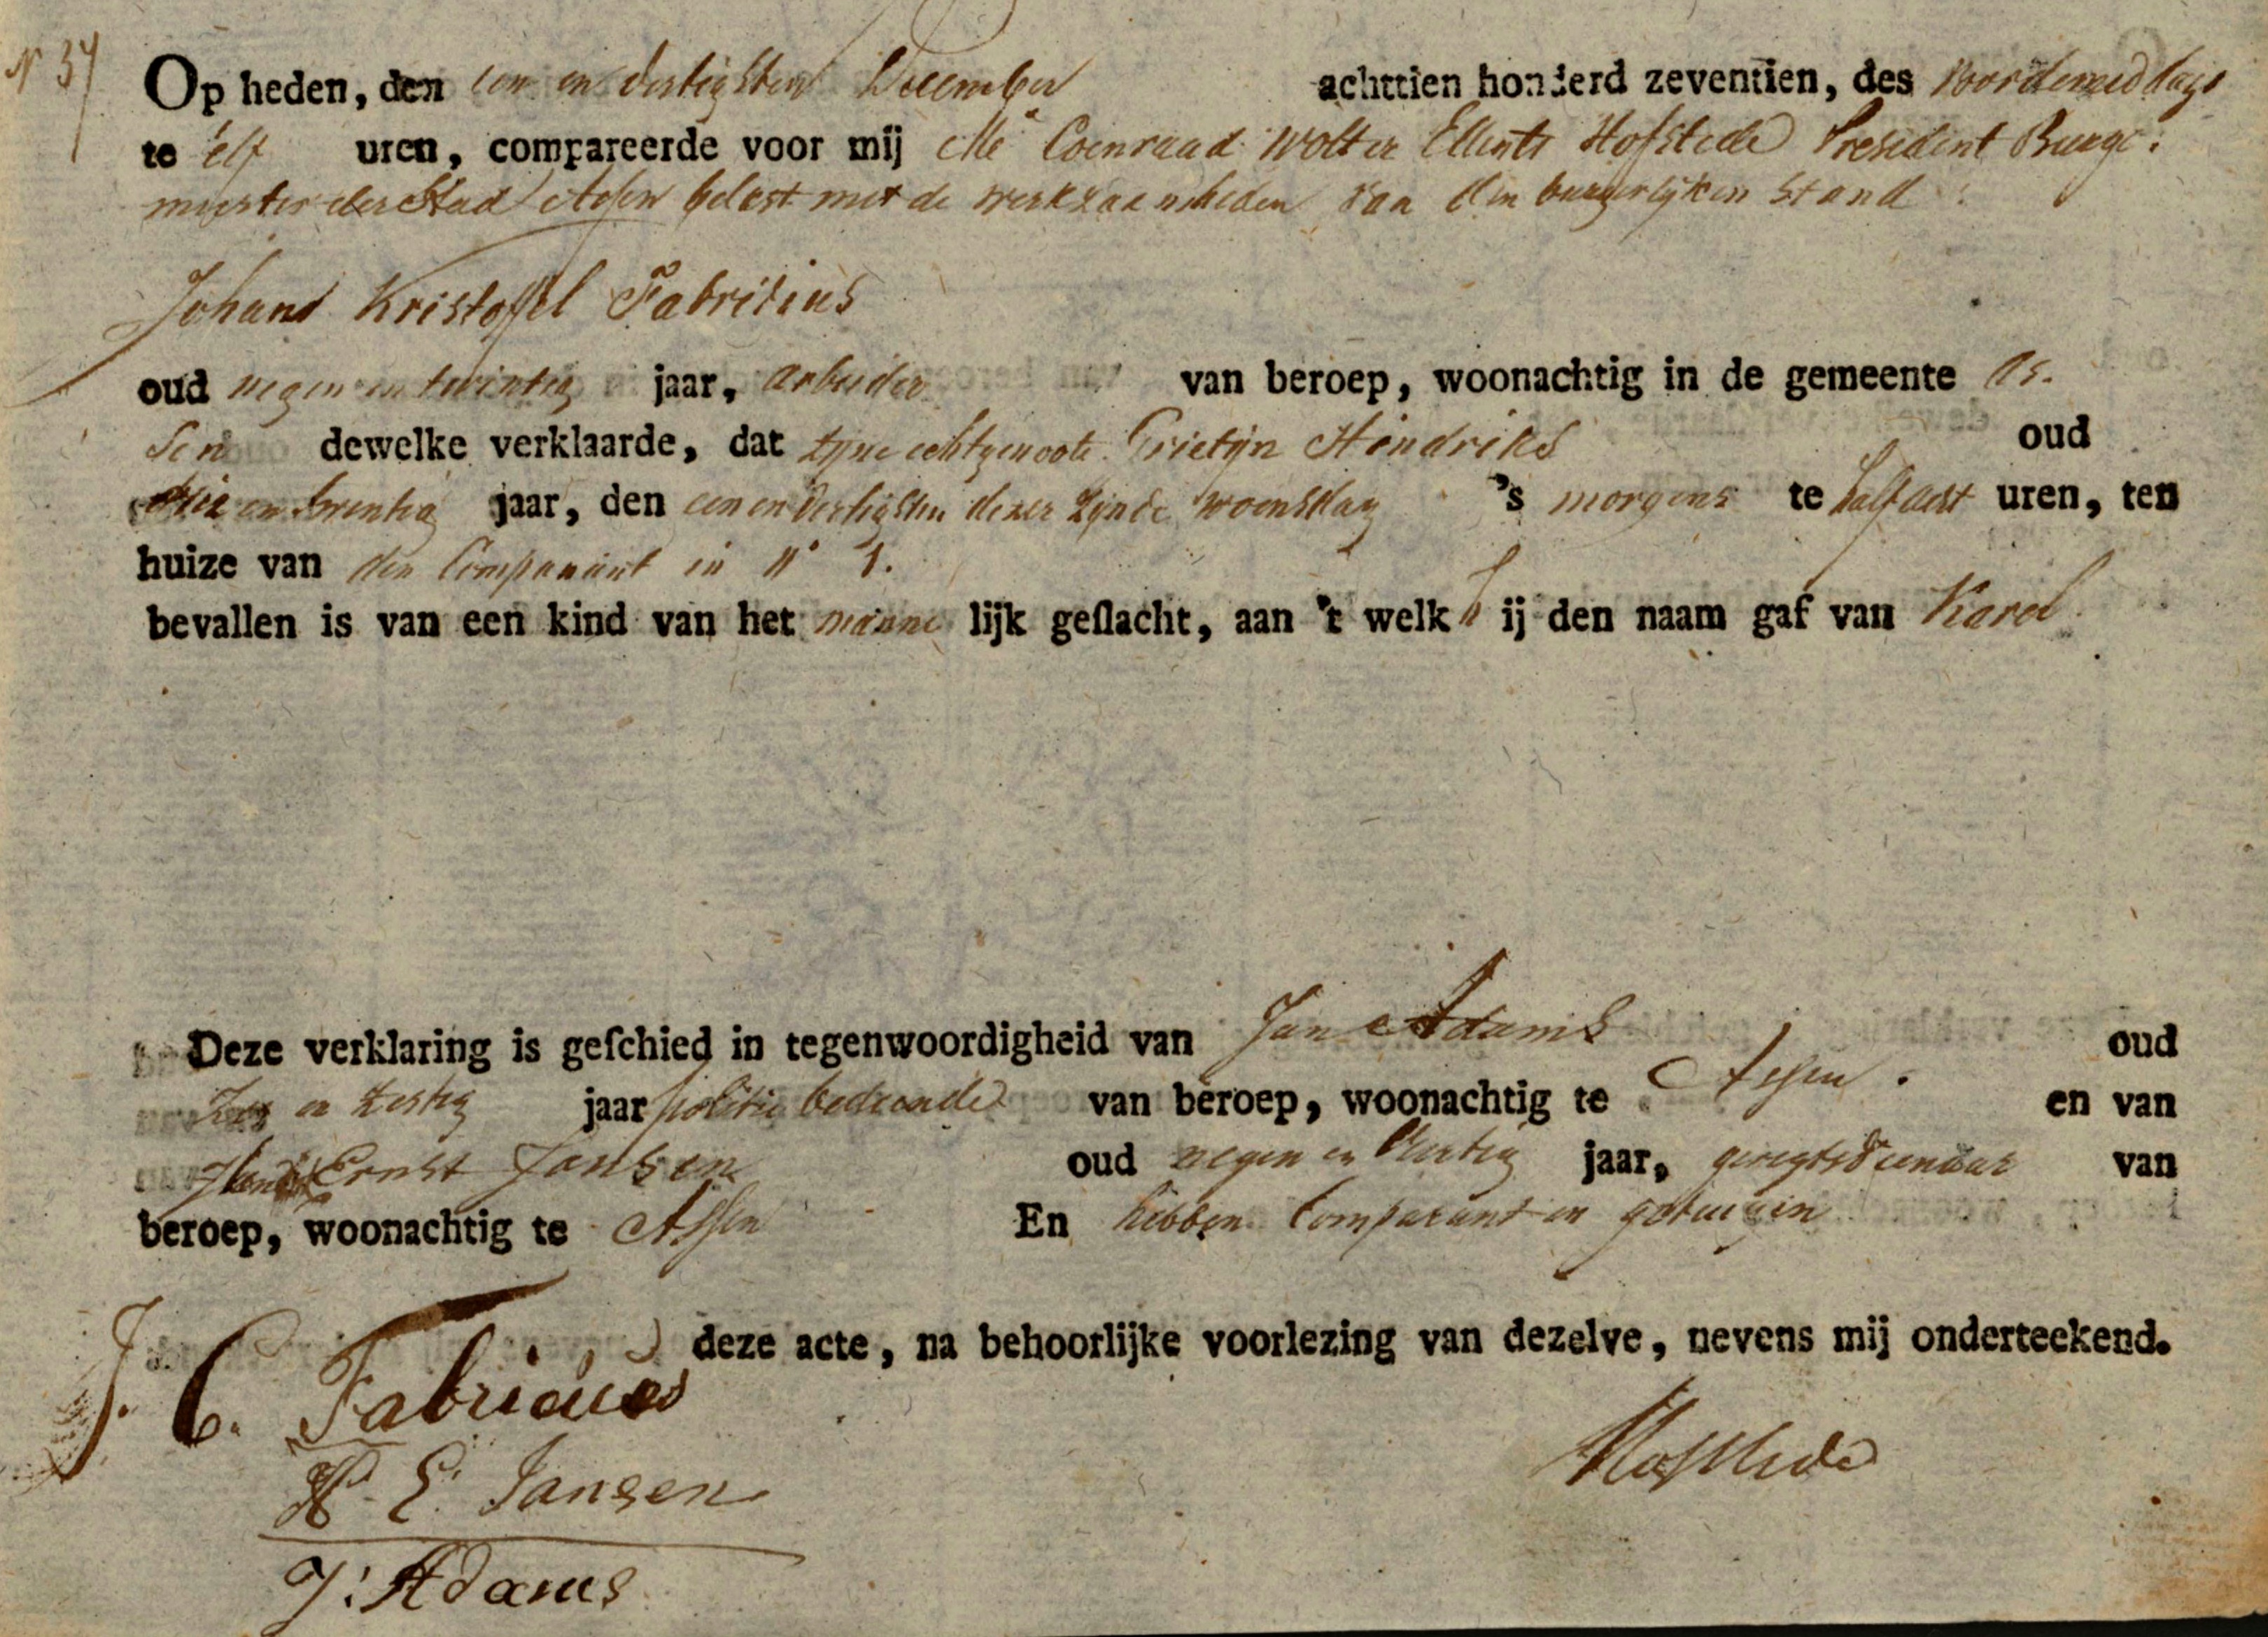 N 37
Op heden, den een en dertigsten December achttien honderd zeventien, des voordemiddags
te elf uren, compareerde voor mij Mr Coenraad Wolter Ellents Hofstede President Burge:
meester der Stad Assen belast met de werkzaamheden van den burgerlyken stand
Johans Kristoffel Fabritius
oud negen en twintig jaar, arbeider van beroep, woonachtig in de gemeente As.
sen dewelke verklaarde, dat zyne echtgenoote Grietyn Hendriks oud
drie en twentig jaar, den een en dertigsten dezer zynde woensdag 's morgens te half acht uren, ten
huize van den Comparant in No 1.
bevallen is van een kind van het manne lijk geslacht, aan 't welk h ij den naam gaf van Karel
Deze verklaring is geschied in tegenwoordigheid van Jan Adams oud
en zestig jaar politie bediende van beroep, woonachtig te Assen. en van
Ernst Jansen oud negen en jaar, geregtsdienaar van
beroep, woonachtig te Assen En hebben Comparant en getuigen
deze acte, na behoorlijke voorlezing van dezelve, nevens mij onderteekend.
J. C. Fabricius
H. E. Jansen
Hofstede
J: Adams